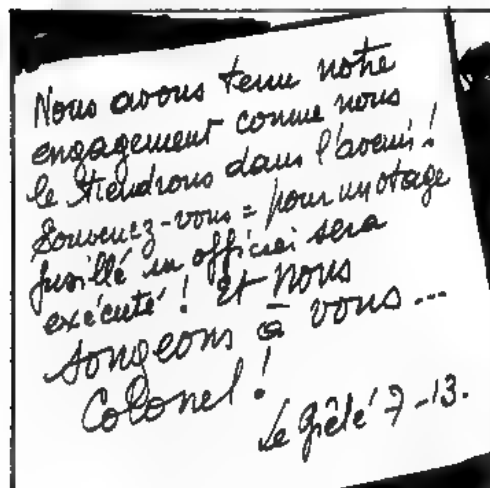 Nous avons tenu notre
engagement comme nous
le tiendrons dans l'avenir !
Souvenez-vous = pour un otage
fusillé un officier sera
exécuté ! Et nous
songeons à vous ...
Colonel !
Le Grêlé 7-13.